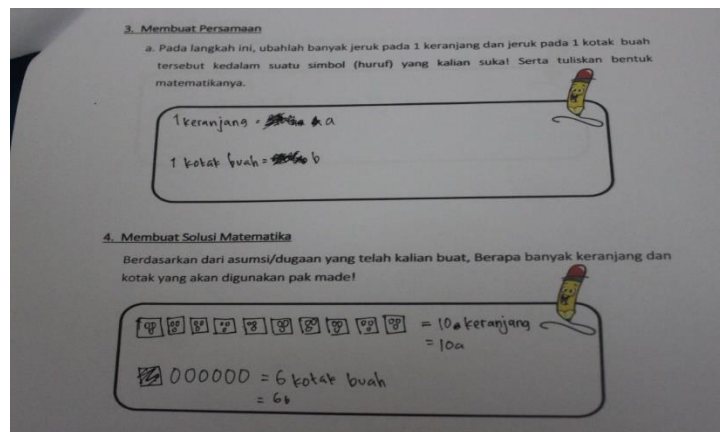 3. Membuat Persamaan
a. Pada langkah ini, ubahlah banyak jeruk pada 1 keranjang dan jeruk pada 1 kotak buah
tersebut kedalam suatu simbol (huruf) yang kalian suka! Serta tuliskan bentuk
matematikanya.
1 keranjang = a
1 kotak buah = b
4. Membuat Solusi Matematika
Berdasarkan dari asumsi/dugaan yang telah kalian buat, Berapa banyak keranjang dan
kotak yang akan digunakan pak made!
= 10 keranjang
= 10a
000000 = 6 kotak buah
= 6b